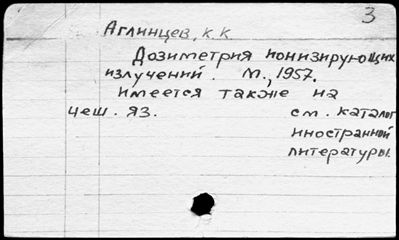 3
Аглинцев, К.К
Дозиметрия ионизирующих
излучений. М., 1957.
Имеется также на
чеш. яз. см. каталог
иностранной
литературы.